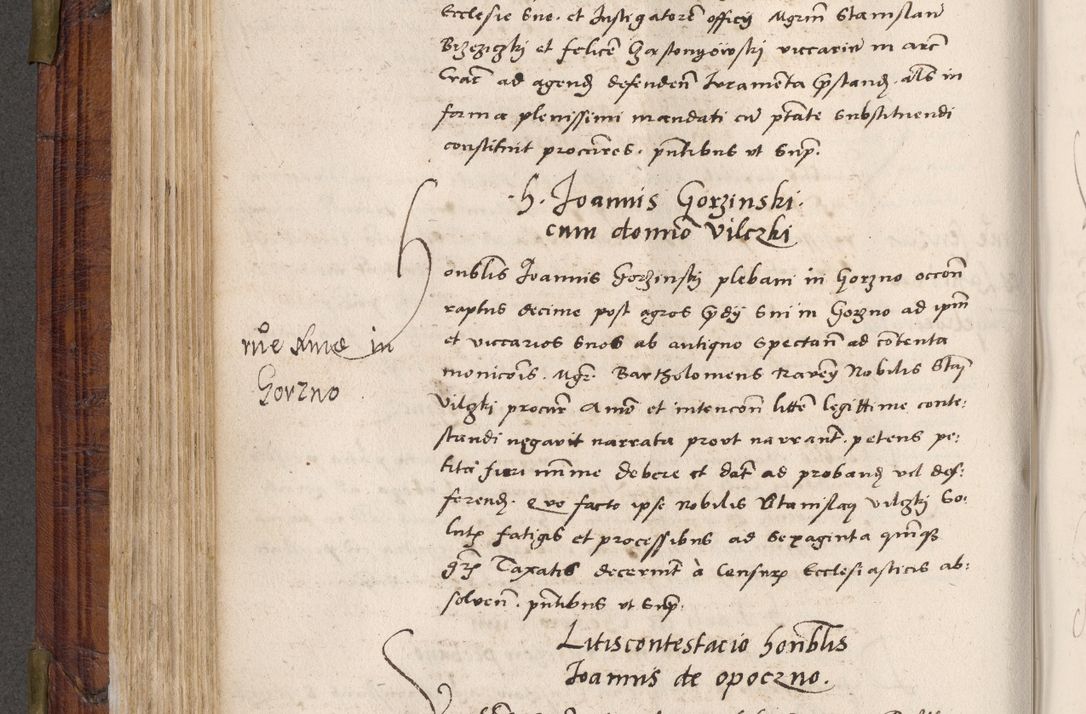 Ecclesie Sue. et Instigatorē officij Mgrm̄ Stanislaū
Brzeziczki et felicē Gastonyowski viccariū in arc̄
Crac̄ ad agend̄ defendeñ Iuramēta p̄stand̄. als̄ in
forma plenissimi mandati cū ptāte Substituendi
constituit procūres. pn̄tibus ut Sup̄.
h. Ioannis Gorzinski.
cum domīo Vilczki
honblis Ioannis Gorzinsky plebani in Gorzno occoñ
raptus decime post agros p̄dy Sui in Gorzno ad ipm̄
et viccarios Suos ab antiquo Spectañ ad cōtenta
monicōis. Mgr̄. Bartholomeus Nobilis Stā
Vilczki procur̄ Aīmo et intencoñ litteñ legittime conte:
standi negavit narrata prout narrant̄. petens pe:
tita fieri minīme debere et dāt ad proband̄ vel def:
ferend̄. Quo facto ipse Nobilis Stanislaus Vilczki So:
lutis fatigis et processibus ad Sexaginta quīqz
gr̄s Taxatis decernit à Censuris Ecclesiasticis ab:
solveñ. pn̄tibus ut Sup̄.
in
Gorzno
Litiscontestacio honblis
Ioannis de opoczno.